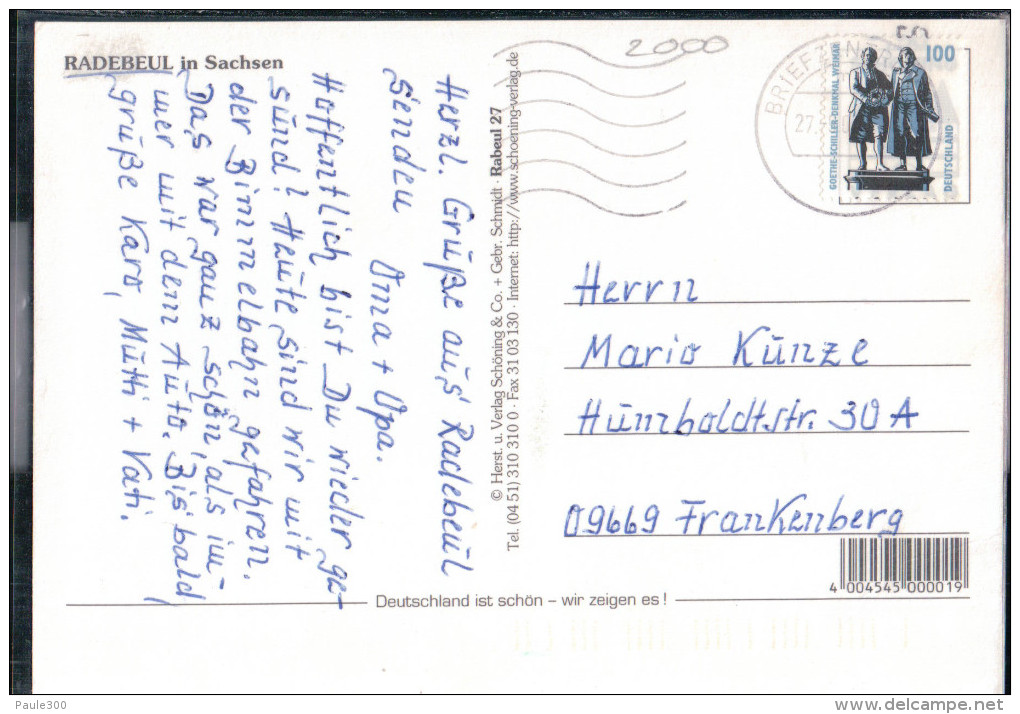 RADEBEUL in Sachsen
Herzl. Grüße aus Radebeul
senden
Oma + Opa.
Hoffentlich bist Du wieder ge-
sund! Heute sind wir mit
der Bimmelbahn gefahren.
Das war ganz schön, als im-
mer mit dem Auto. Bis bald,
grüße Karo, Mutti + Vati.
© Herst. u. Verlag Schöning & Co. + Gebr. Schmidt · Rabeul 27
Tel. (04 51) 310 310 0 · Fax 31 03 130 · Internet: http://www.schoening-verlag.de
2000
BRIEF
27.
100
GOETHE-SCHILLER-DENKMAL WEIMAR
DEUTSCHLAND
Herrn
Mario Kunze
Humboldtstr. 30 A
09669 Frankenberg
4 004545 000019
Deutschland ist schön – wir zeigen es!
Paule300
www.delcampe.net